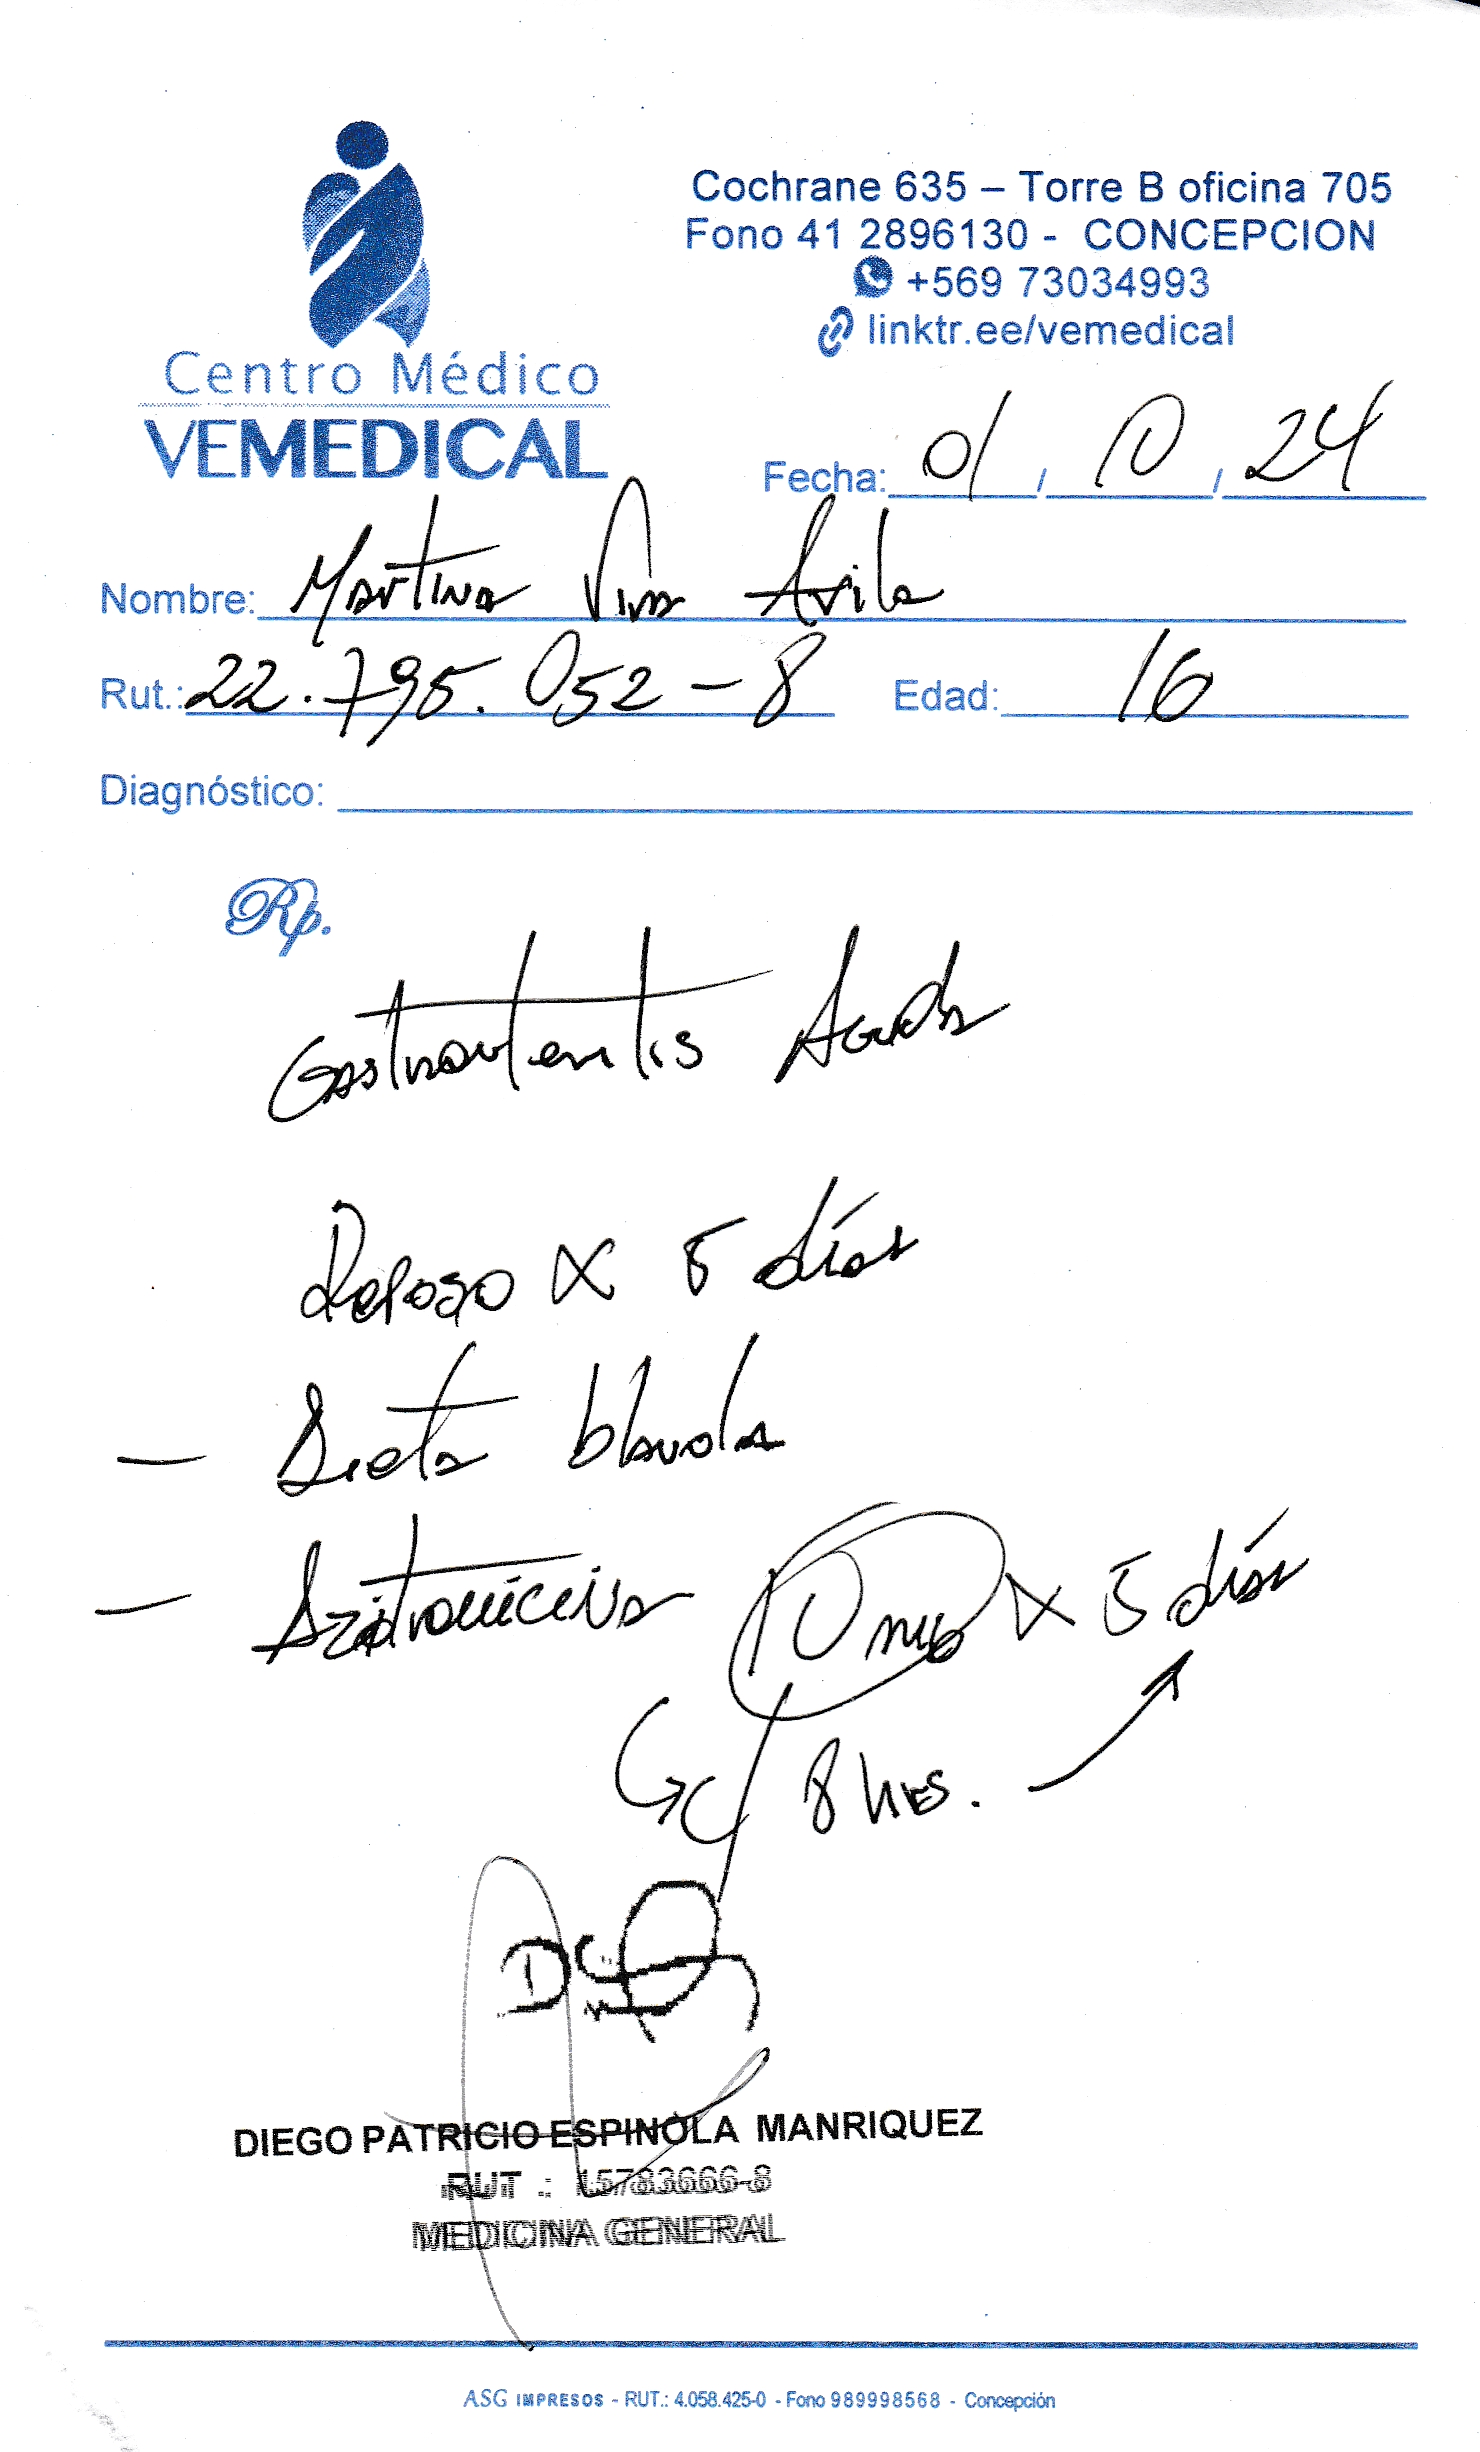 Cochrane 635 – Torre B oficina 705
Fono 41 2896130 - CONCEPCION
+569 73034993
linktr.ee/vemedical
Centro Médico
VEMEDICAL
Fecha: 01 / 10 / 24
Nombre: Martina Avila
Rut.: 22.795.052-8 Edad: 16
Diagnóstico:
Rp.
Gastroenteritis Aguda
Reposo X 5 días
- Dieta blanda
- Azitromicina 10 X 5 días
c/ 8 hrs.
DIEGO PATRICIO ESPINOLA MANRIQUEZ
RUT : 15783666-8
MEDICINA GENERAL
ASG IMPRESOS - RUT.: 4.058.425-0 - Fono 989998568 - Concepción